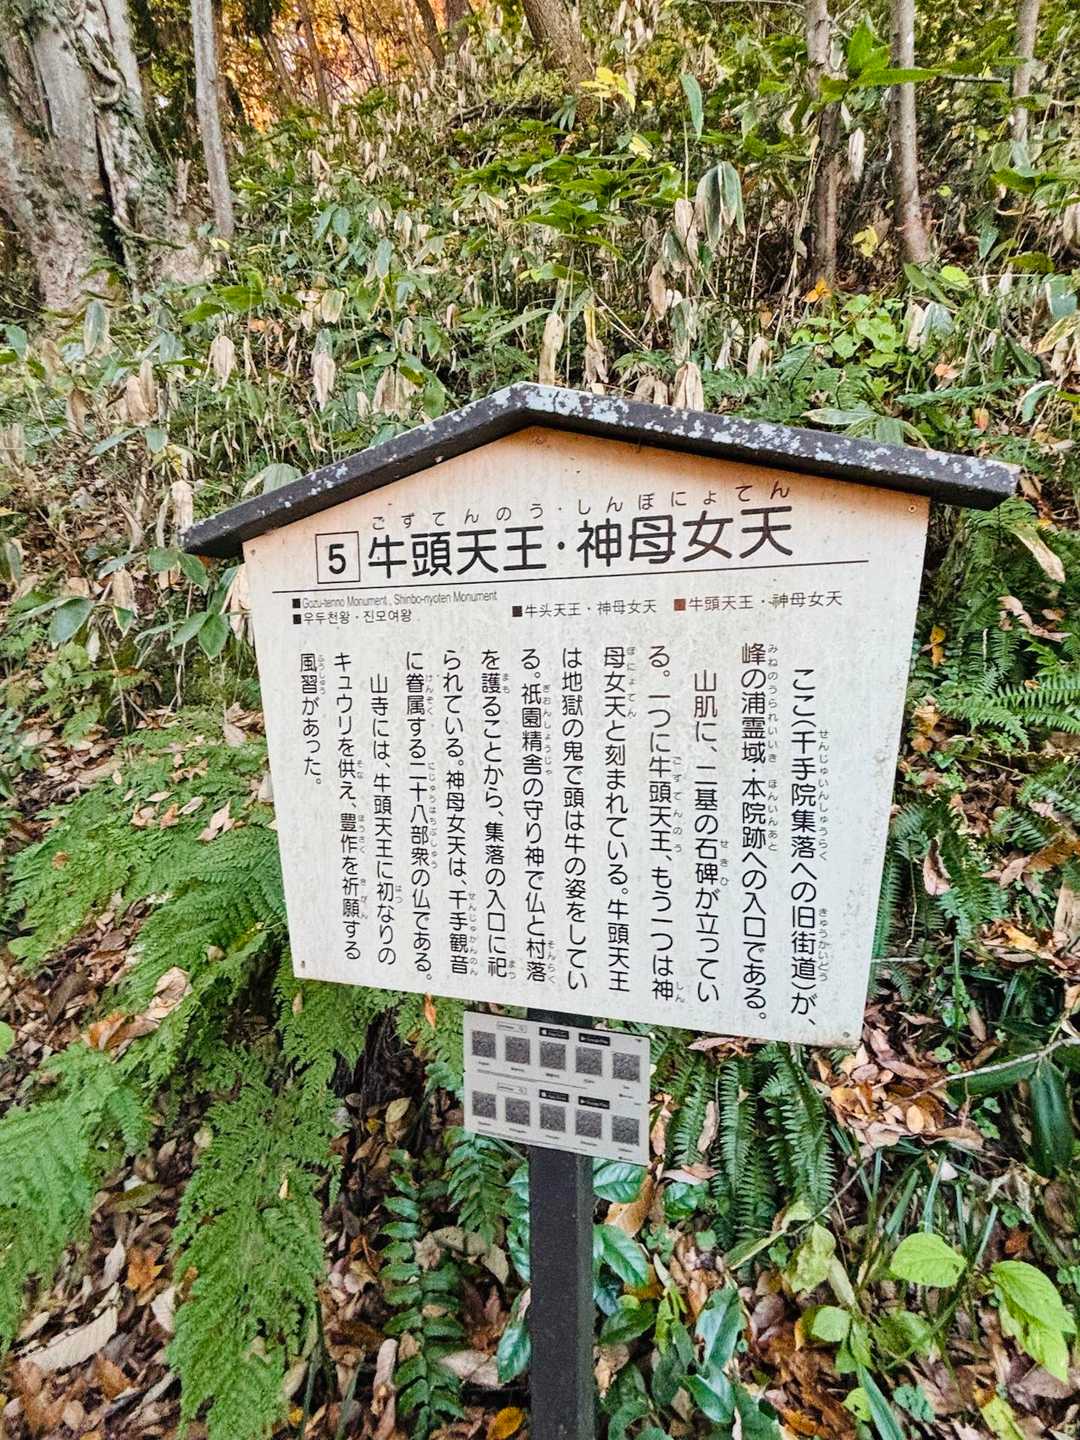 ごずてんのう・しんぼにょてん
5 牛頭天王・神母女天
■Gozu-tenno Monument , Shinbo-nyoten Monument
■우두천왕・진모여왕
■牛头天王・神母女天
■牛頭天王・神母女天
ここ(千手院集落への旧街道)が、
峰の浦霊域・本院跡への入口である。
山肌に、二基の石碑が立ってい
る。一つに牛頭天王、もう一つは神
母女天と刻まれている。牛頭天王
は地獄の鬼で頭は牛の姿をしてい
る。祇園精舎の守り神で仏と村落
を護ることから、集落の入口に祀
られている。神母女天は、千手観音
に眷属する二十八部衆の仏である。
山寺には、牛頭天王に初なりの
キュウリを供え、豊作を祈願する
風習があった。